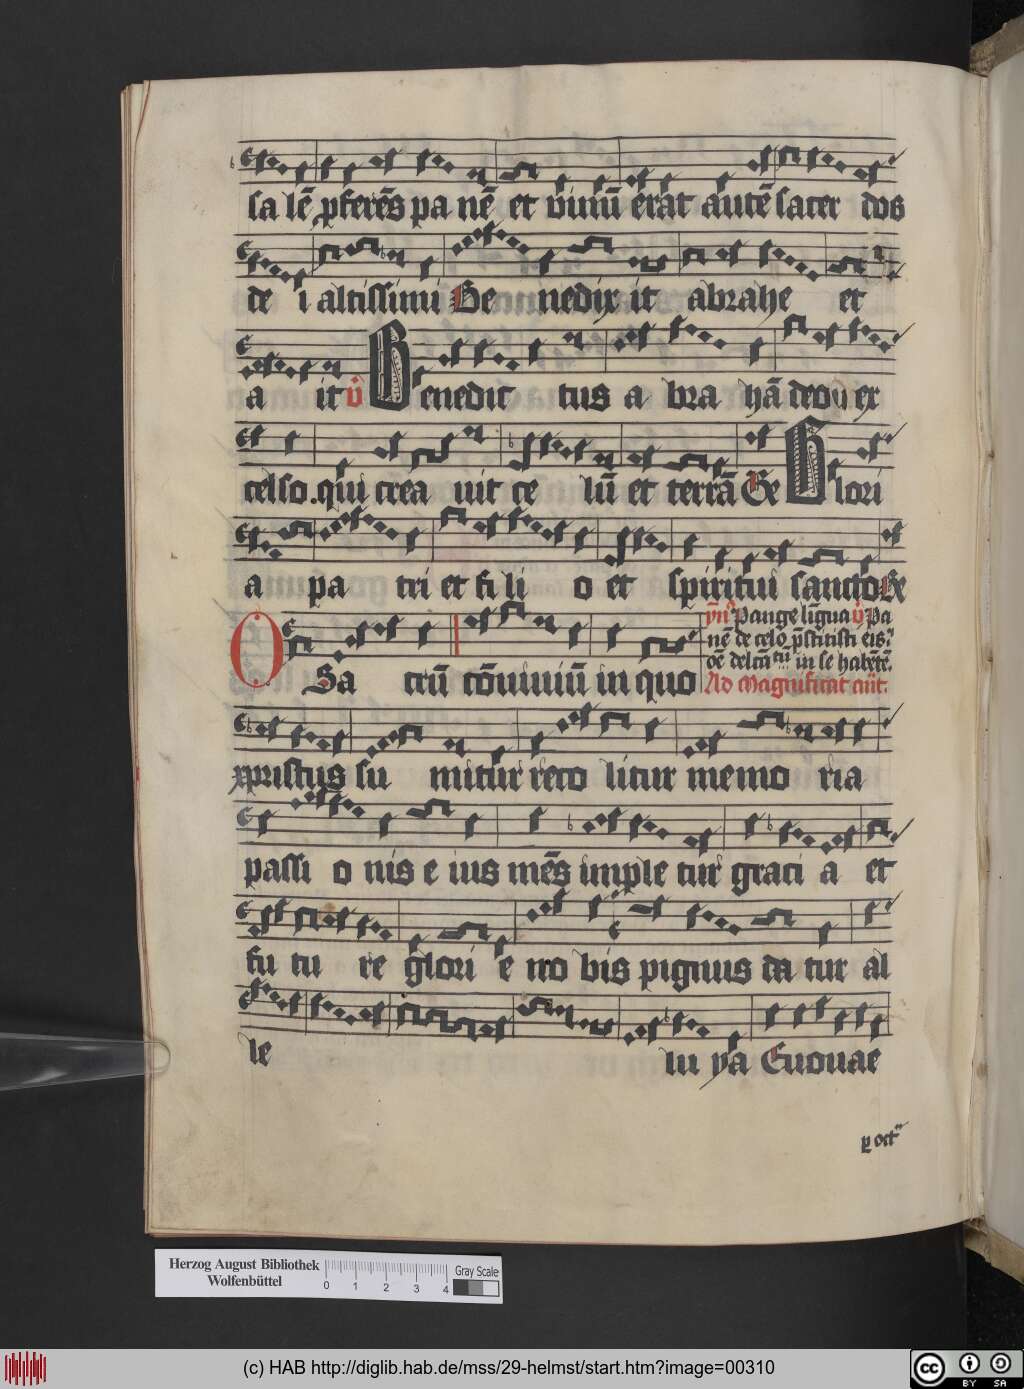 sa lē p̱ferēs pa nē et vinū erat autē sacer dos
de i altissimi Be nedix it abrahe et
a it v̄ Benedic tus a bra hā deo q̄ ex
celso . qui crea uit ce lū et terrā Be Glori
a pa tri et fi li o et spiritui sancto Be
ȳn᷎ Pange līgua v̄ Pa
nē de celo p̄stitisti eis᷎
O Sa crū cōuiuiū in quo
oē delcā tū in se habētē.
Ad Magnificat añt.
xpristus su mitur reco litur memo ria
passi o nis e ius mēs imple tur graci a et
fu tu re glori e no bis pignus da tur al
le lu ya Euouae
p̱ oct᷎
Herzog August Bibliothek
Wolfenbüttel
0 1 2 3 4
Gray Scale
(c) HAB http://diglib.hab.de/mss/29-helmst/start.htm?image=00310
cc BY SA